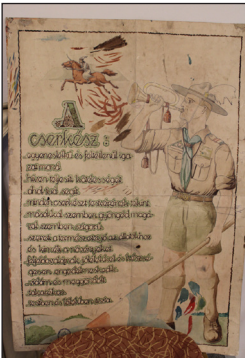 A
cserkész:
egyeneslelkű és feltétlenül iga-
zat mond.
híven teljesíti kötelességeit
ahol tud segít.
minden cserkészt testvérének tekint.
másokkal szemben gyöngéd magá-
val szemben szigorú.
szereti a természetet jó az állatokhoz
és kíméli a növényeket.
feljebbvalóinak jólélekkel és készsé-
gesen engedelmeskedik.
vidám és meggondolt.
takarékos.
testben és lélekben tiszta.